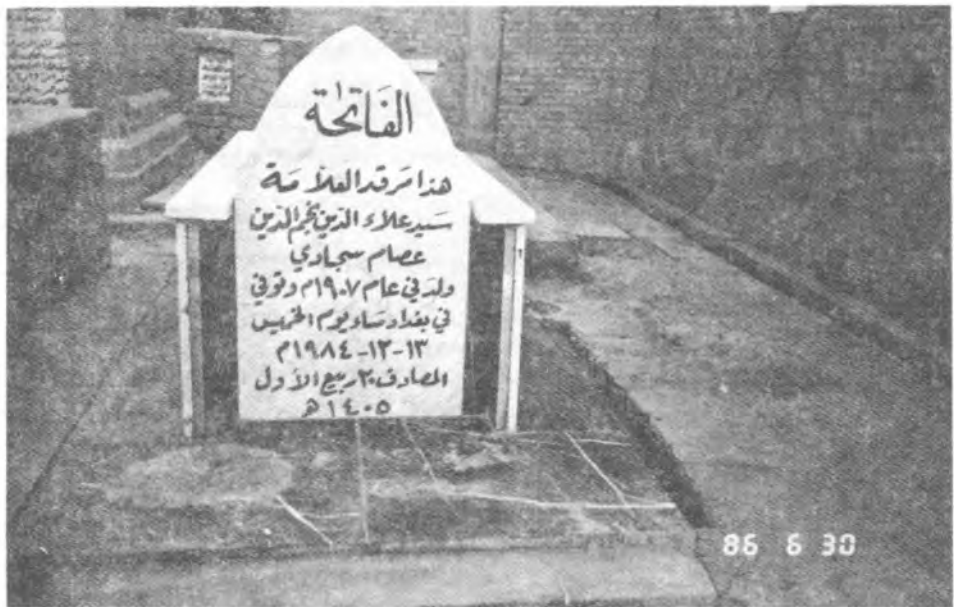 الفاتحة
هذا مرقد العلامة
سيد علاء الدين نجم الدين
عصام سجادي
ولد في عام ١٩٠٧م وتوفي
في بغداد مساء يوم الخميس
١٣-١٢-١٩٨٤م
المصادف ٢٠ ربيع الأول
١٤٠٥ هـ
86 6 30